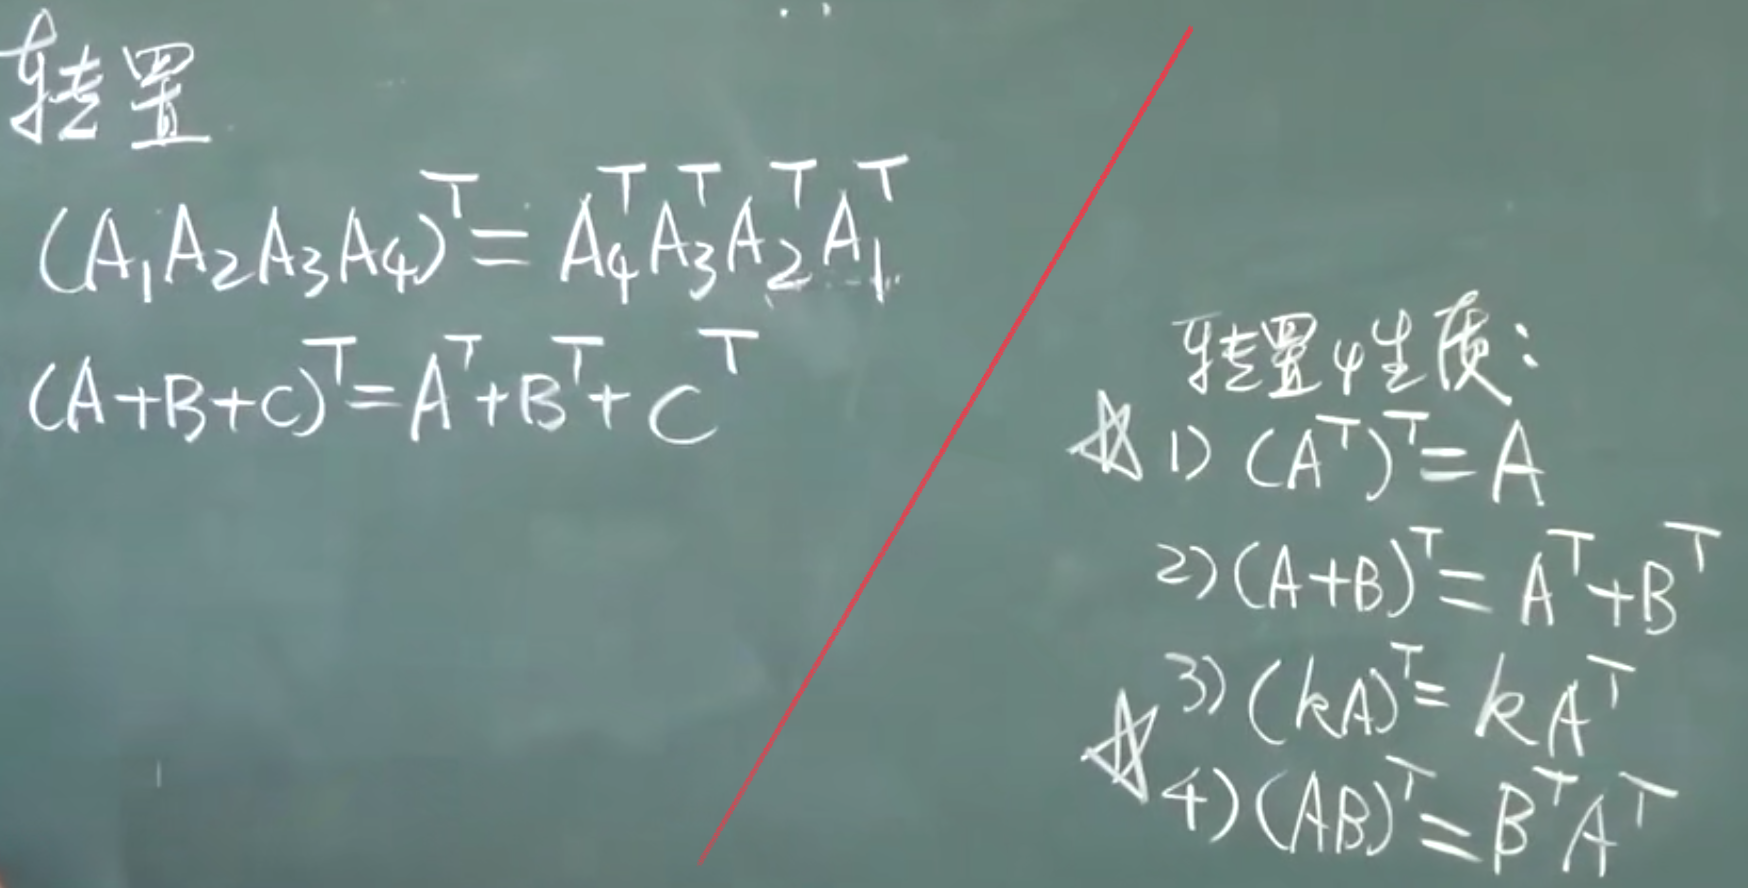 转置
(A₁A₂A₃A₄)ᵀ = A₄ᵀA₃ᵀA₂ᵀA₁ᵀ
(A+B+C)ᵀ = Aᵀ+Bᵀ+Cᵀ
转置性质:
☆ 1) (Aᵀ)ᵀ = A
2) (A+B)ᵀ = Aᵀ+Bᵀ
3) (kA)ᵀ = kAᵀ
☆ 4) (AB)ᵀ = BᵀAᵀ